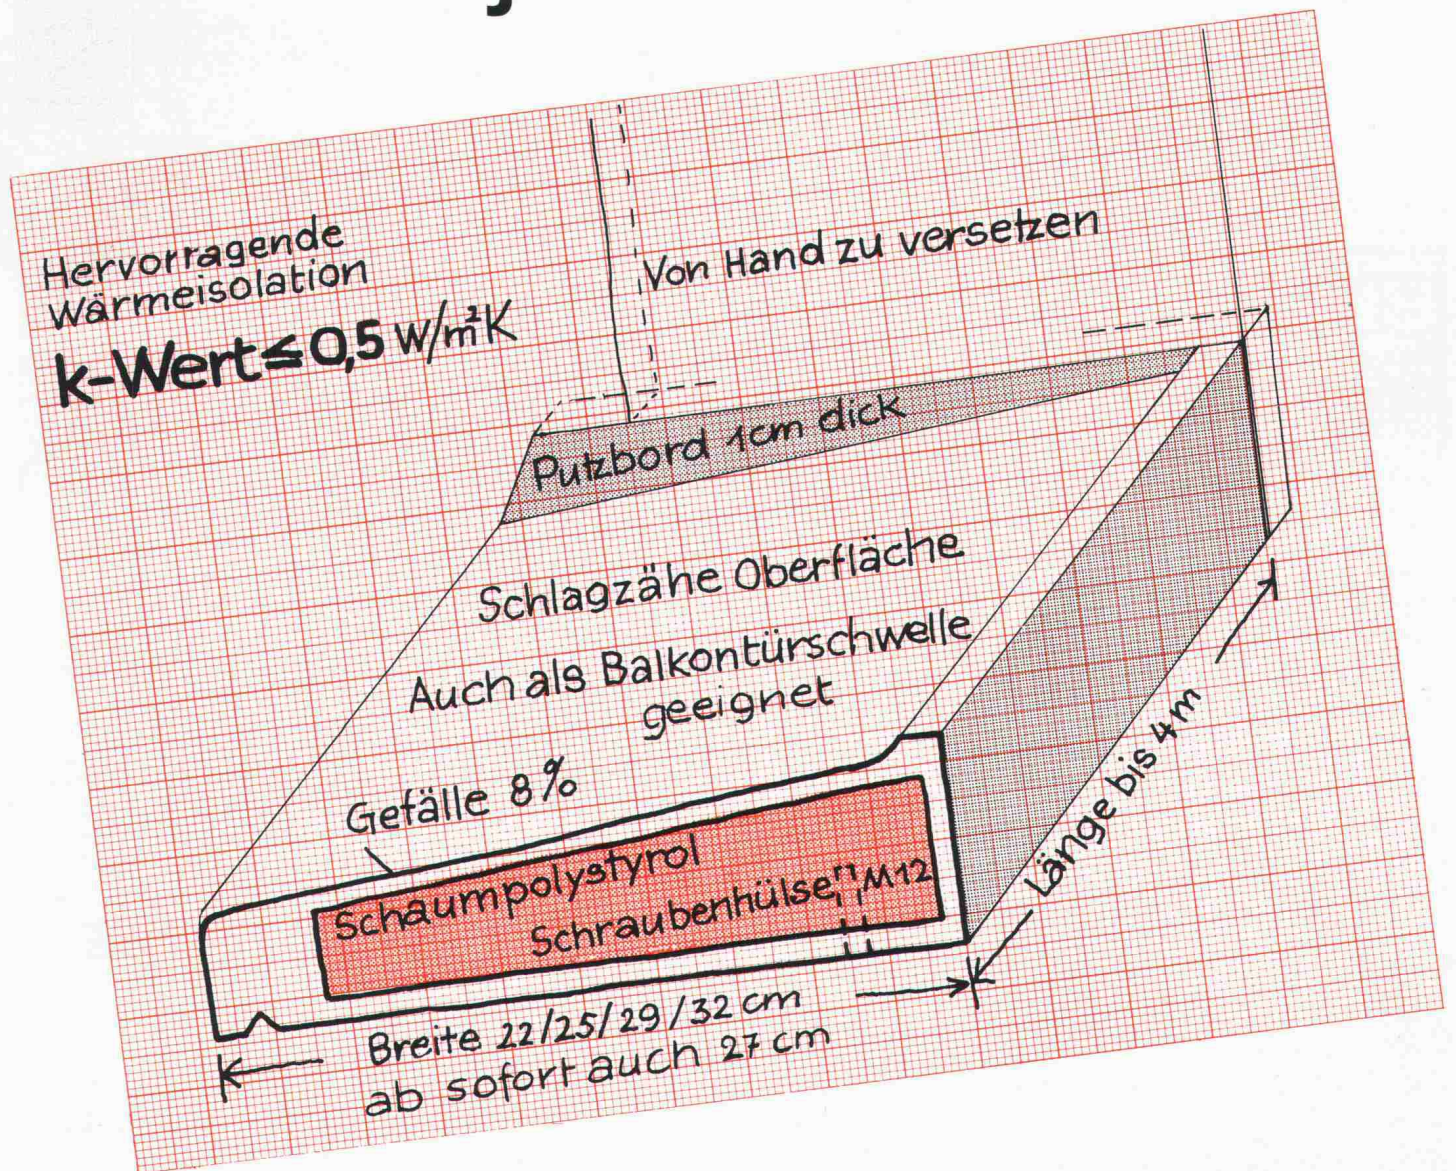 Hervorragende
Wärmeisolation
k-Wert ≤ 0,5 W/m²K
Von Hand zu versetzen
Putzbord 1cm dick
Schlagzähe Oberfläche
Auch als Balkontürschwelle
geeignet
Gefälle 8%
Schaumpolystyrol
Schraubenhülse M12
Länge bis 4m
Breite 22/25/29/32 cm
ab sofort auch 27 cm